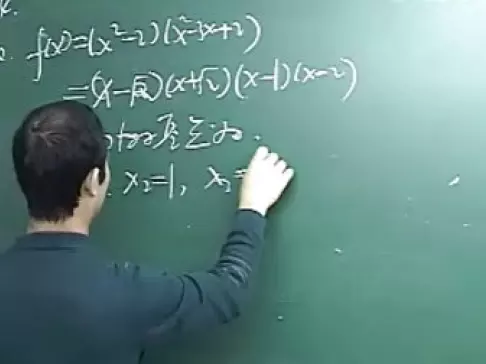 2. f(x)=(x²-2)(x²-3x+2)
=(x-√2)(x+√2)(x-1)(x-2)
零点为:
x₂=1, x₃=